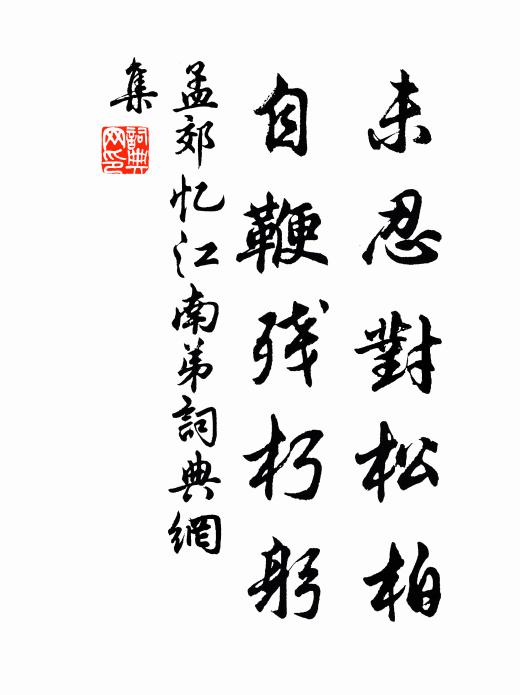 未忍對松柏
自鞭残朽躬
孟郊忆江南弟詞典網
集
詞典
网印